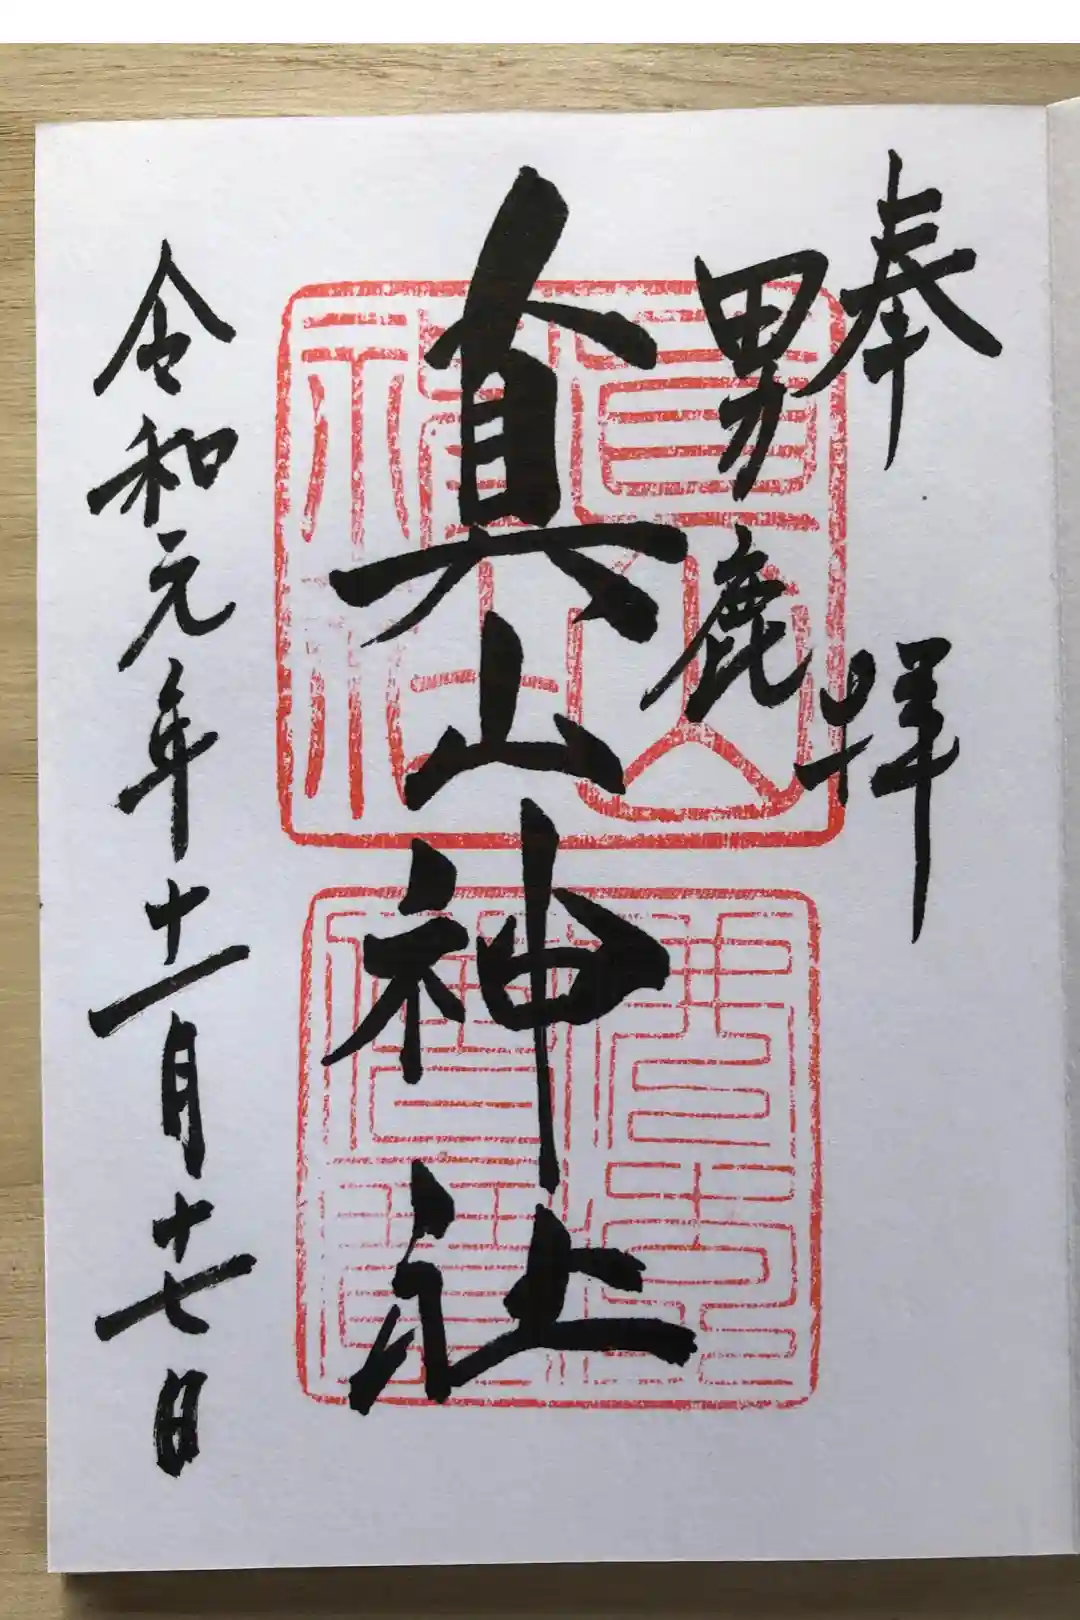 奉拝
男鹿
真山神社
令和元年十一月十七日
真山神社